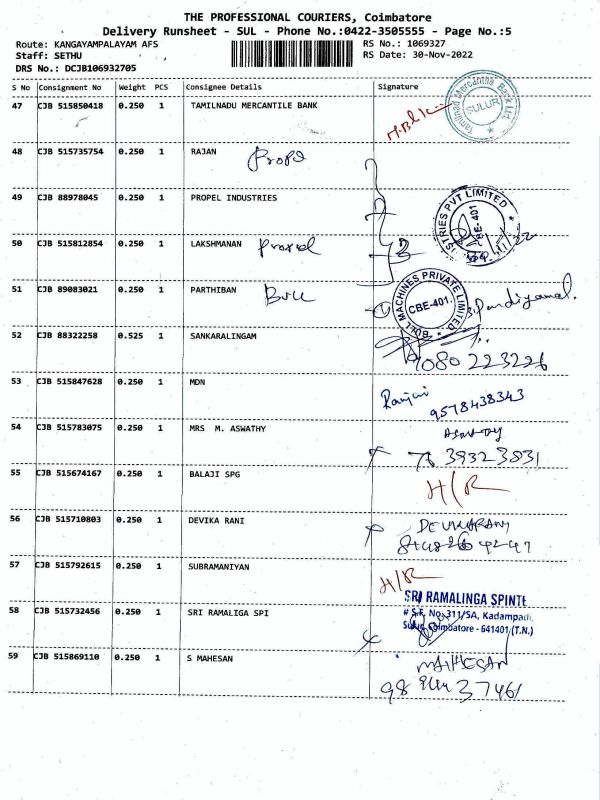 THE PROFESSIONAL COURIERS, Coimbatore
Delivery Runsheet - SUL - Phone No.:0422-3505555 - Page No.:5
Route: KANGAYAMPALAYAM AFS RS No.: 1069327
Staff: SETHU RS Date: 30-Nov-2022
DRS No.: DCJB106932705
S No Consignment No Weight PCS Consignee Details Signature
47 CJB 515850418 0.250 1 TAMILNADU MERCANTILE BANK
Tamilnad Mercantile Bank Ltd.
SULUR
48 CJB 515735754 0.250 1 RAJAN Propel
49 CJB 88978045 0.250 1 PROPEL INDUSTRIES
STRIES PVT LIMITED
CBE-401
50 CJB 515812854 0.250 1 LAKSHMANAN Propel
51 CJB 89083021 0.250 1 PARTHIBAN Bull
BULL MACHINES PRIVATE LIMITED
CBE-401
52 CJB 88322258 0.525 1 SANKARALINGAM
9080 223226
53 CJB 515847628 0.250 1 MDN
Ranjani
9578438343
54 CJB 515783075 0.250 1 MRS M. ASWATHY
55 CJB 515674167 0.250 1 BALAJI SPG H/R
56 CJB 515710803 0.250 1 DEVIKA RANI
57 CJB 515792615 0.250 1 SUBRAMANIYAN H/R
SRI RAMALINGA SPINTE
58 CJB 515732456 0.250 1 SRI RAMALIGA SPI
# S.F. No. 311/5A, Kadampadi,
Sulur, Coimbatore - 641401 (T.N.)
59 CJB 515869110 0.250 1 S MAHESAN
MAHESAN